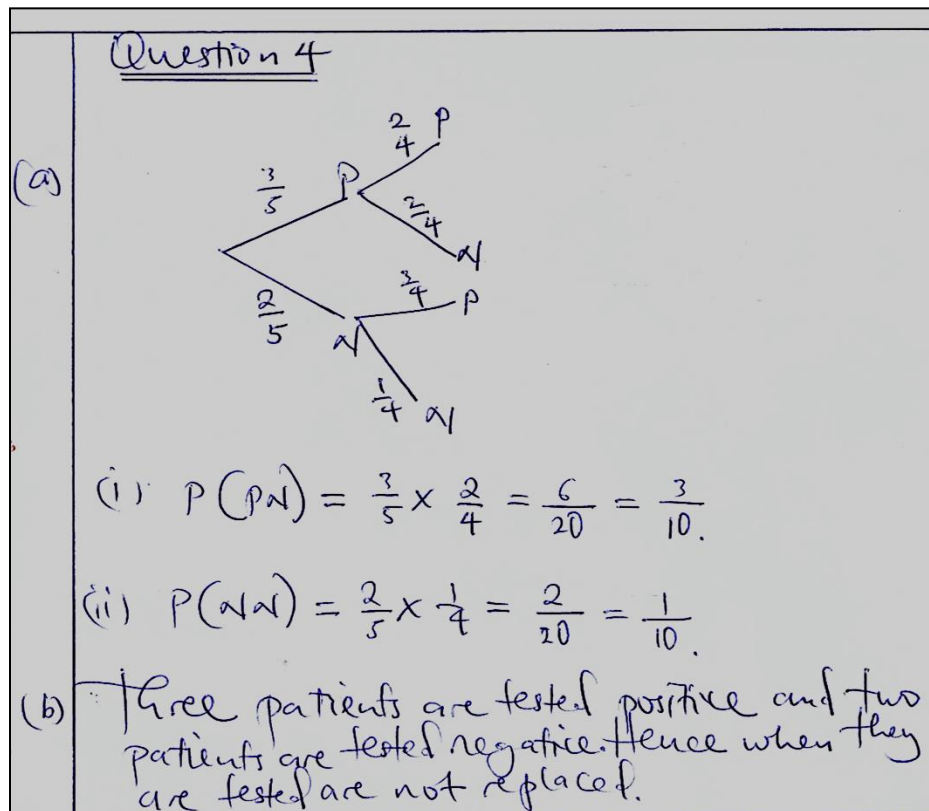 Question 4
(a)
2/4 P
3/5 P
2/4
N
3/4 P
2/5
N
1/4 N
(i) P(PN) = 3/5 × 2/4 = 6/20 = 3/10.
(ii) P(NN) = 2/5 × 1/4 = 2/20 = 1/10.
(b) Three patients are tested positive and two
patients are tested negative. Hence when they
are tested are not replaced.